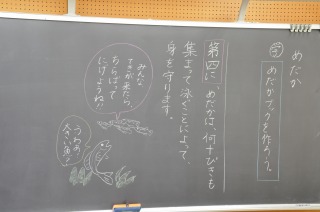 めだか
めだかブックを作ろう。
第四に、めだかは、何十ぴきも
集まって泳ぐことによって、
身を守ります。
みんな
てきが来たら、
ちらばって
にげようね!!
うわぁ、
大きい魚?